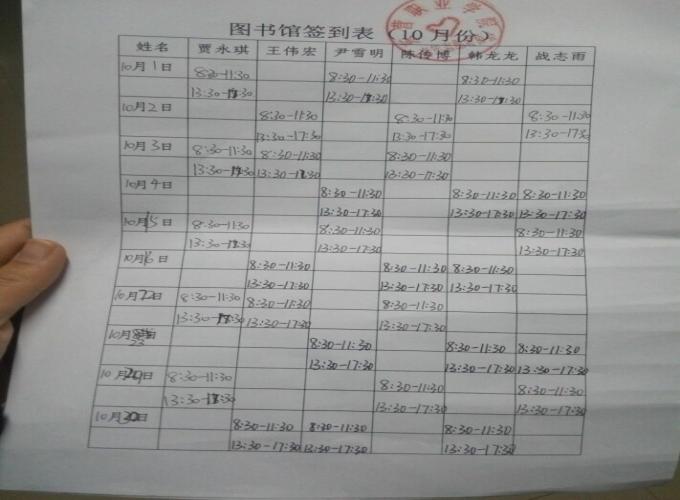 图书馆签到表（10月份）
职业学院
姓名 贾永琪 王伟宏 尹雪明 陈传博 韩龙龙 战志雨
10月1日 8:30-11:30 8:30-11:30 8:30-11:30
13:30-17:30 13:30-17:30 13:30-17:30
10月2日 8:30-11:30 8:30-11:30 8:30-11:30
13:30-17:30 13:30-17:30 13:30-17:30
10月3日 8:30-11:30 8:30-11:30 8:30-11:30
13:30-17:30 13:30-17:30 13:30-17:30
10月4日 8:30-11:30 8:30-11:30 8:30-11:30
13:30-17:30 13:30-17:30 13:30-17:30
10月15日 8:30-11:30 8:30-11:30 8:30-11:30
13:30-17:30 13:30-17:30 13:30-17:30
10月16日 8:30-11:30 8:30-11:30 8:30-11:30
13:30-17:30 13:30-17:30 13:30-17:30
10月22日 8:30-11:30 8:30-11:30 8:30-11:30
13:30-17:30 13:30-17:30 13:30-17:30
10月23日 8:30-11:30 8:30-11:30 8:30-11:30
13:30-17:30 13:30-17:30 13:30-17:30
10月29日 8:30-11:30 8:30-11:30 8:30-11:30
13:30-17:30 13:30-17:30 13:30-17:30
10月30日 8:30-11:30 8:30-11:30 8:30-11:30
13:30-17:30 13:30-17:30 13:30-17:30